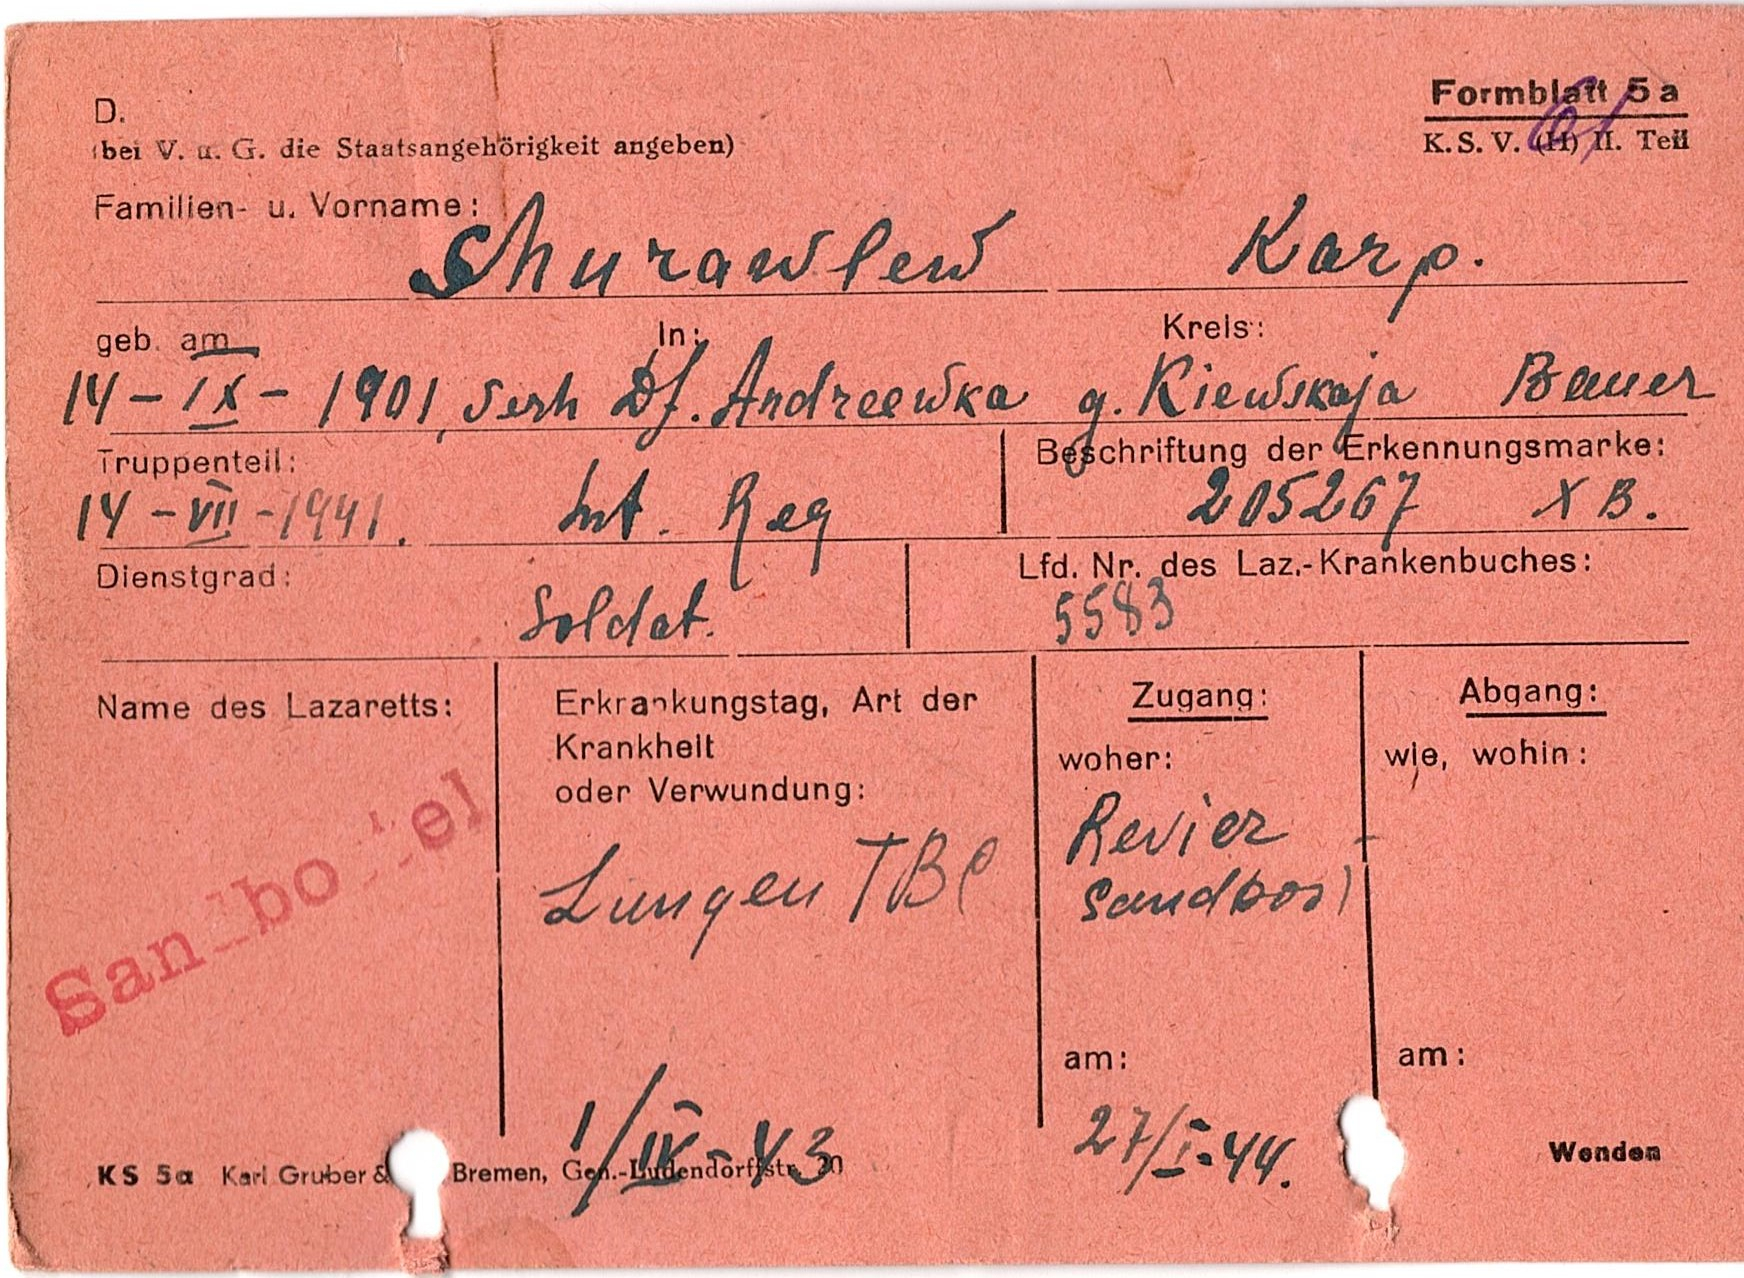 D.
Formblatt 5 a
(bei V. u. G. die Staatsangehörigkeit angeben)
K. S. V. (H) II. Teil
Familien- u. Vorname:
Schurawlew Karp.
geb. am In: Kreis:
14-IX-1901, Df. Andreewka g. Kiewskaja Bauer
Truppenteil: Beschriftung der Erkennungsmarke:
14-VII-1941. Inf. Reg 205267 X B.
Dienstgrad: Lfd. Nr. des Laz.-Krankenbuches:
Soldat. 5583
Name des Lazaretts:
Sandbostel
Erkrankungstag, Art der
Krankheit
oder Verwundung:
Lungen TBC
1/IV-43
Zugang:
woher:
Revier
Sandbos
am:
27/I-44.
Abgang:
wie, wohin:
am:
Wenden
KS 5a Karl Gruber & Bremen, Gen.-Ludendorffstr. 20